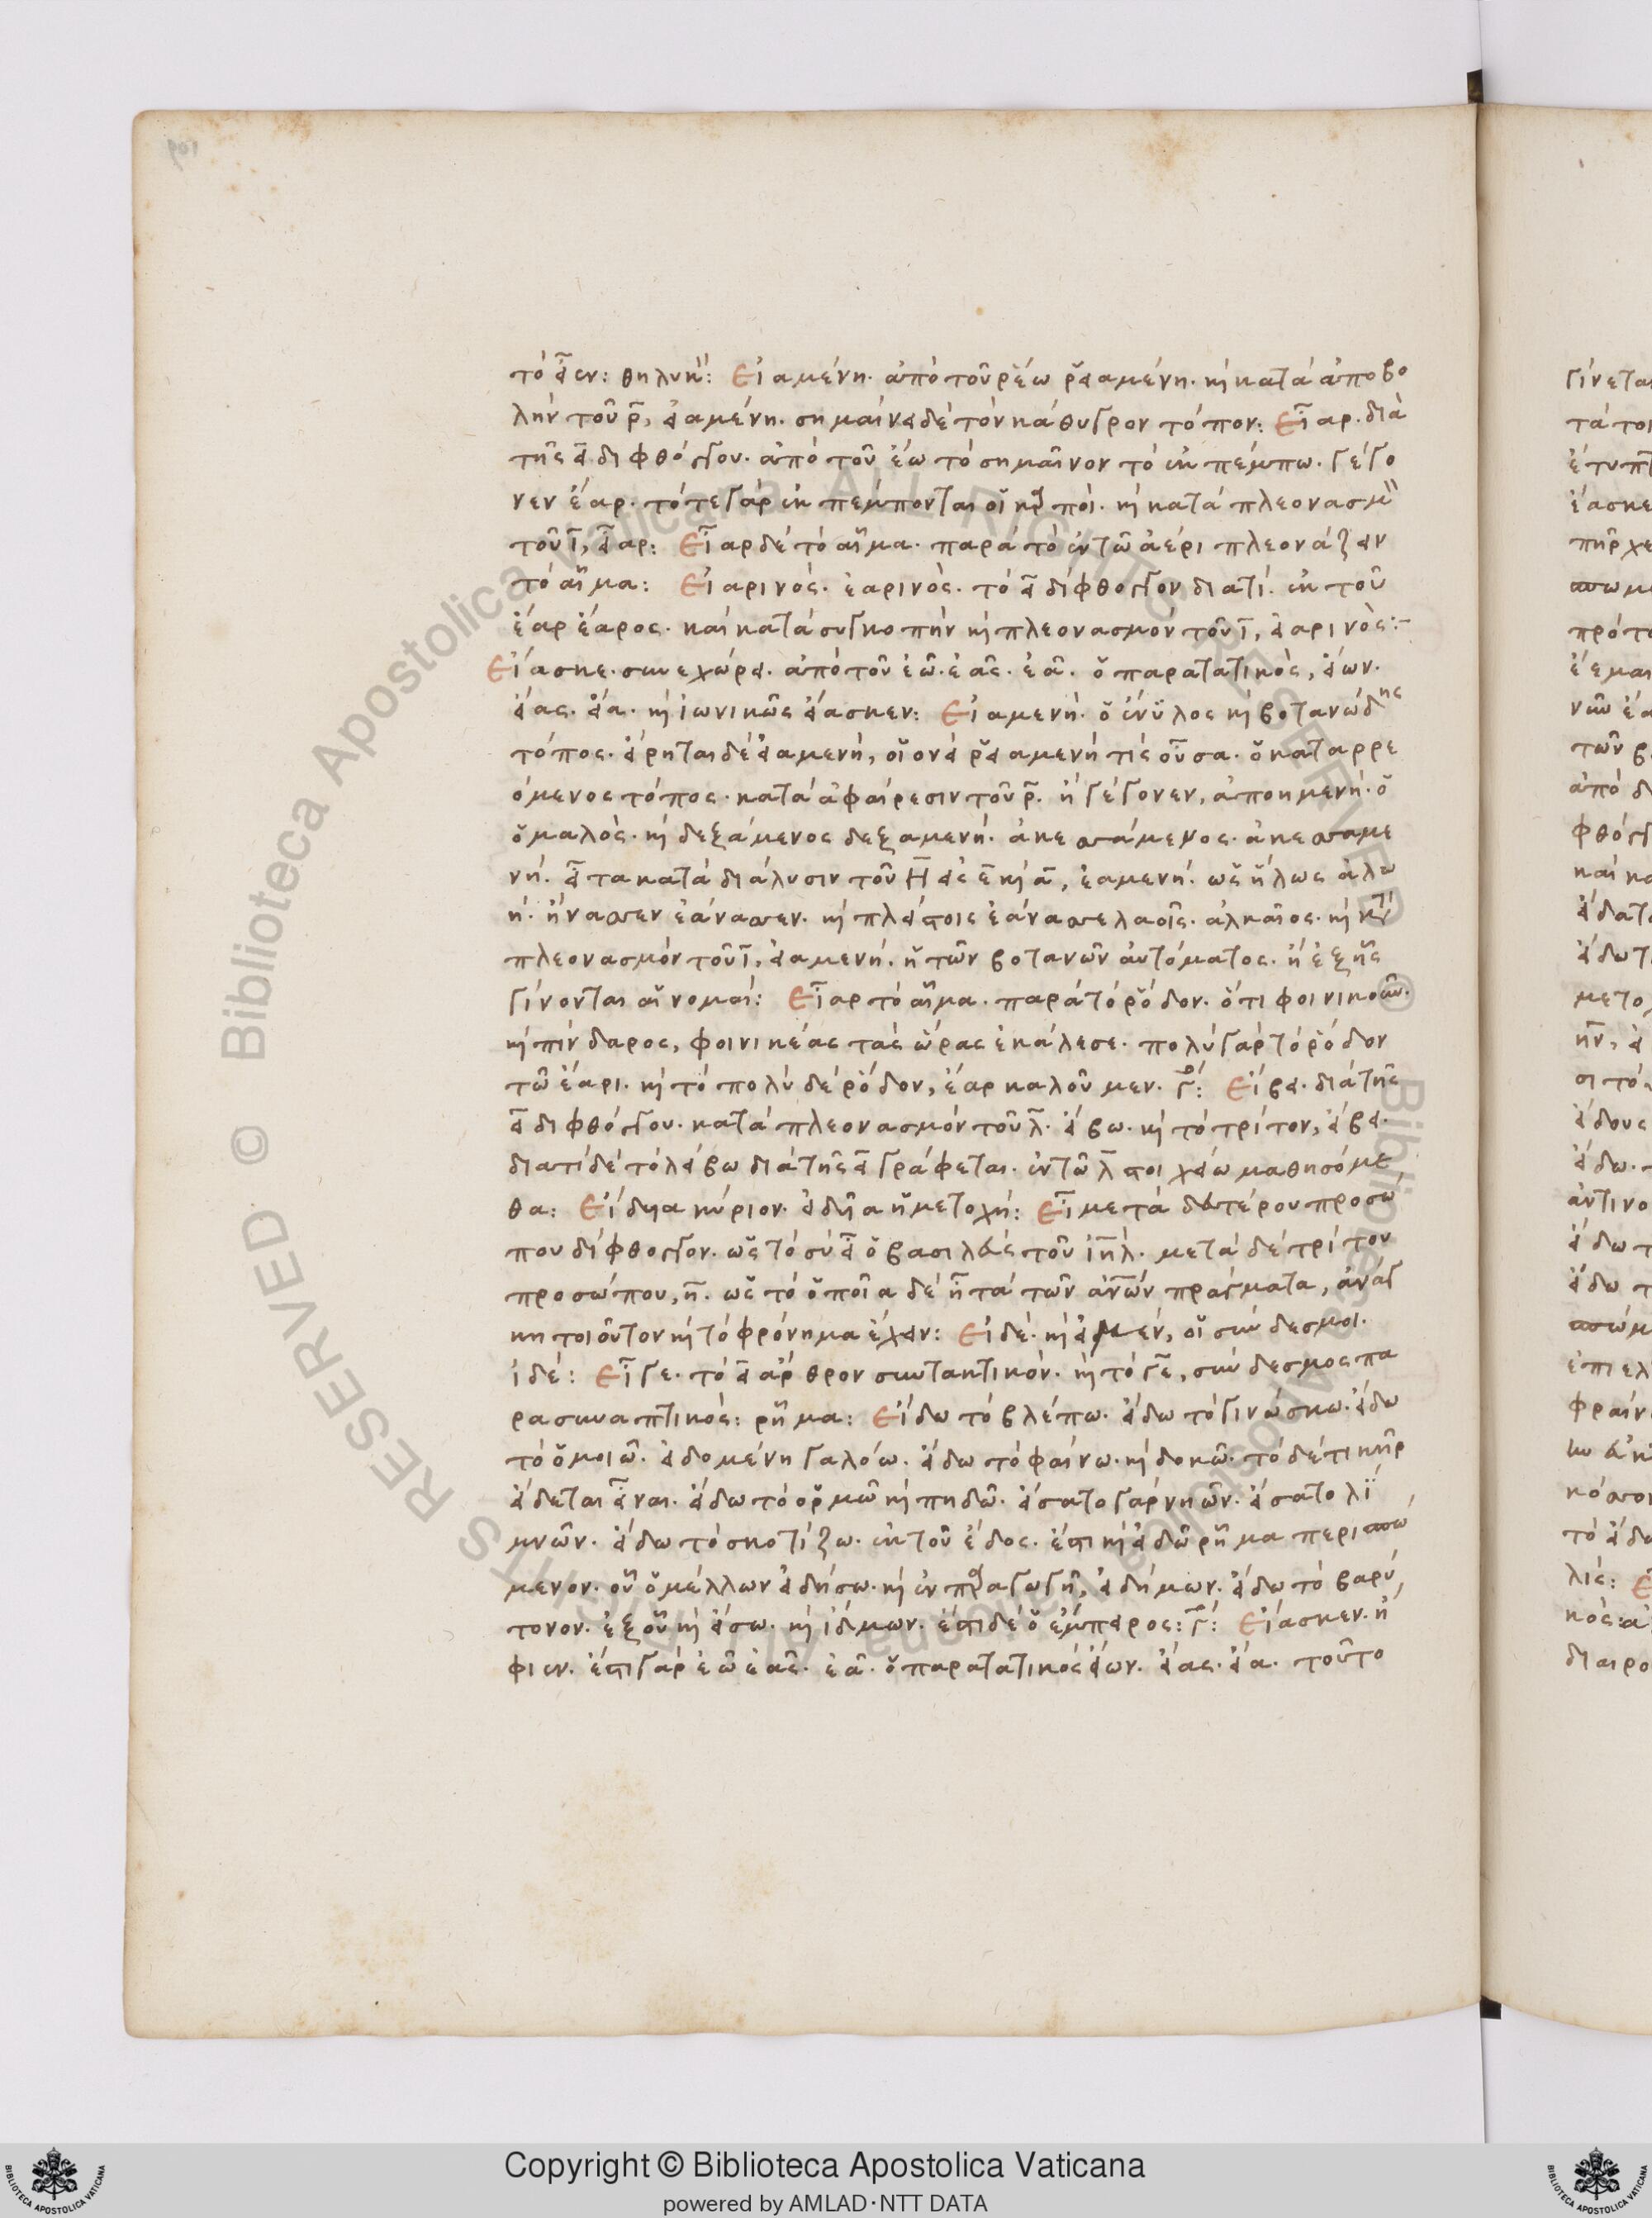 τὸ εἶεν: θηλυκ: Εἰαμένη· ἀπὸ τοῦ ῥέω ῥειαμένη· καὶ κατὰ ἀποβο
λὴν τοῦ ρ̅, εἰαμένη· σημαίνει δὲ τὸν κάθυγρον τόπον: Εἶαρ· διὰ
τῆς ει διφθόγγου· ἀπὸ τοῦ ἕω τὸ σημαῖνον τὸ ἐκπέμπω· γέγο
νεν ἔαρ· τότε γὰρ ἐκπέμπονται οἱ καρποί· καὶ κατὰ πλεονασμ
τοῦ ι̅, εἶαρ: Εἶαρ δὲ τὸ αἷμα· παρὰ τὸ ἐν τῶ ἀέρι πλεονάζειν
τὸ αἷμα: Εἰαρινός· ἐαρινός· τὸ ει δίφθογγον διατί· ἐκ τοῦ
ἔαρ ἔαρος· καὶ κατὰ συγκοπὴν καὶ πλεονασμὸν τοῦ ι̅, εἰαρινός:
Εἴασκε· συνεχώρει· ἀπὸ τοῦ ἐῶ· ἐᾶς· ἐᾶ· ὁ παρατατικὸς, εἴων·
εἴας· εἴα· καὶ ἰωνικῶς εἴασκεν: Εἰαμενή· ὁ ἔνϋλος καὶ βοτανώδης
τόπος· εἴρηται δὲ εἰαμενή, οἱονεὶ ῥειαμενή τις οὖσα· ὁ καταρρε
όμενος τόπος· κατὰ ἀφαίρεσιν τοῦ ρ̅. ἢ γέγονεν, ἀπὸ ἡμενή· ὁ
ὁμαλός· καὶ δεξάμενος δεξαμενή· ἀκεσσάμενος· ἀκεσσαμε
νή· εἶτα κατὰ διάλυσιν τοῦ η̅ εἰς ε̅ καὶ α̅, ἐαμενή· ὡς ἥλως ἀλω
ή· ἤνασσεν ἐάνασσεν· καὶ πλείστοις ἐάνασσε λαοῖς· ἀλκαῖος· καὶ κατὰ
πλεονασμὸν τοῦ ι̅, εἰαμενή· ἡ τῶν βοτανῶν αὐτόματος· ἢ ἐξ ἧς
γίνονται αἱ νομαί: Εἶαρ τὸ αἷμα· παρὰ τὸ ῥόδον· ὅτι φοινικοῦν·
καὶ πίνδαρος, φοινικέας τὰς ὥρας ἐκάλεσε· πολὺ γὰρ τὸ ῥόδον
τῶ ἔαρι· καὶ τὸ πολὺ δὲ ῥόδον, ἔαρ καλοῦμεν· Εἴβει· διὰ τῆς
ει διφθόγγου· κατὰ πλεονασμὸν τοῦ λ̅· εἴβω· καὶ τὸ τρίτον, εἴβει·
διατί δὲ τὸ λείβω διὰ τῆς ει γράφεται· ἐν τῶ λ̅ στοιχείω μαθησόμε
θα: Εἴδυια κύριον· εἰδυῖα ἡ μετοχή: Εἶ μετὰ δευτέρου προσώ
που δίφθογγον· ὡς τὸ σὺ εἶ ὁ βασιλεὺς τοῦ ἰηλ· μετὰ δὲ τρίτον
προσώπου, ῆ· ὡς τὸ ὁποῖα δὲ ῆ τὰ τῶν ἀνῶν πράγματα, ἀνάγ
κη τοιοῦτον καὶ τὸ φρόνημα ἔχειν: Εἰδέ· καὶ εἰ μὲν, οἱ σύνδεσμοι·
ἰδέ: Εἶγε· τὸ ει ἄρθρον συντακτικόν· καὶ τὸ γε, σύνδεσμος πα
ρασυναπτικός: ρῆμα: Εἴδω τὸ βλέπω· εἴδω τὸ γινώσκω· εἴδω
τὸ ὁμοιῶ· εἰδομένη γαλόω· εἴδω τὸ φαίνω· καὶ δοκῶ· τὸ δέ τι κῆρ
εἴδεται εἶναι· εἴδω τὸ ὁρμῶ καὶ πηδῶ· εἴσατο γὰρ νηῶν· εἴσατο λϊ
μνῶν· εἴδω τὸ σκοτίζω· ἐκ τοῦ ἔδος· ἔστι καὶ εἰδῶ ρῆμα περισπώ
μενον· οὗ ὁ μέλλων εἰδήσω· καὶ ἐν παραγωγῆ, εἰδήμων· εἴδω τὸ βαρύ
τονον· ἐξ οὗ καὶ εἴσω· καὶ ἴδμων· ἔστι δὲ ὁ ἔμπειρος: Εἴασκεν· ἤ
φιεν· ἔστι γὰρ ἐῶ ἐᾶς· ἐᾶ· ὁ παρατατικὸς εἴων· εἴας· εἴα· τοῦτο